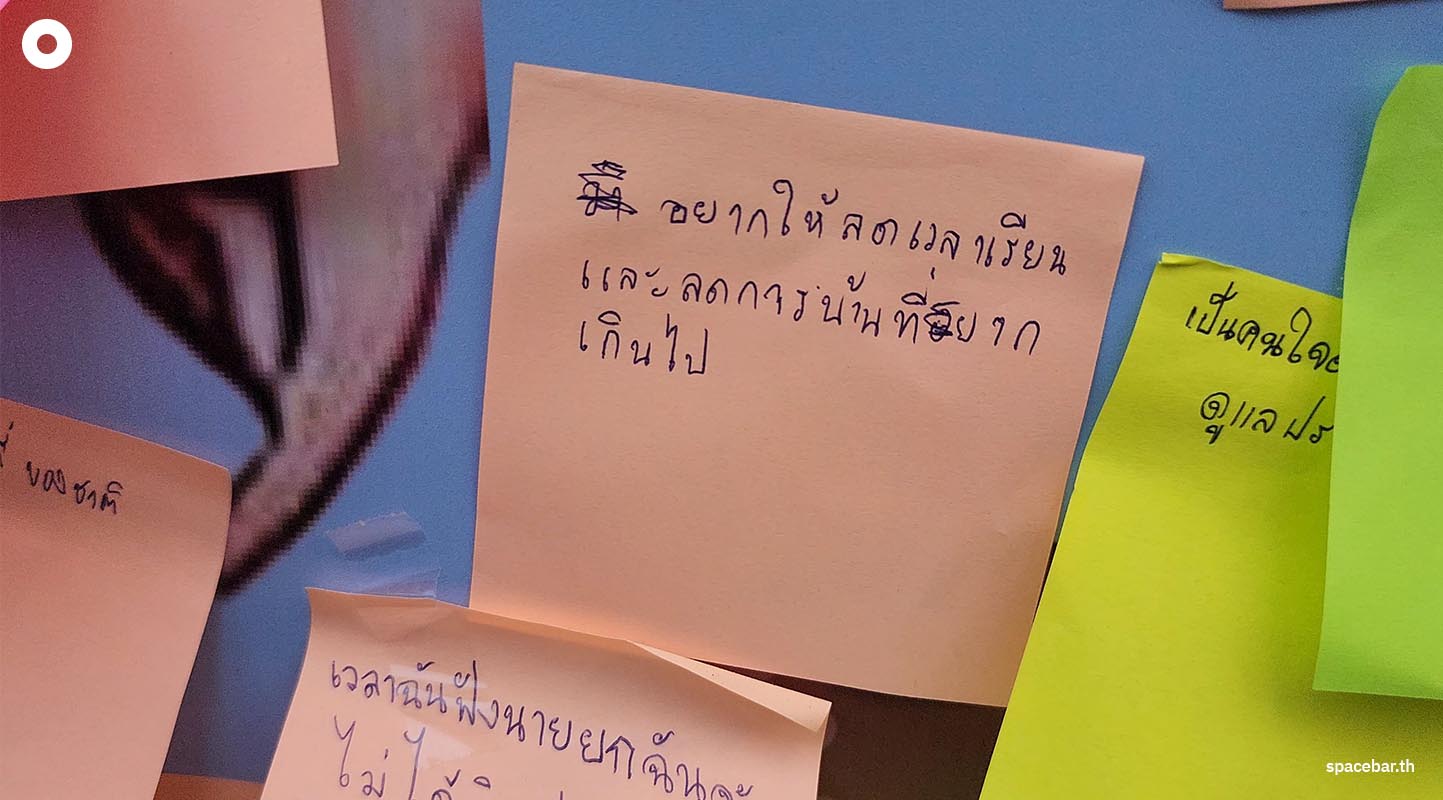 อยากให้ลดเวลาเรียน
และลดการบ้านที่ยาก
เกินไป
เป็นคนใจ
ดูแลปร
ของชาติ
เวลาฉันฟังนายยกฉันจะ
ไม่ได้
spacebar.th